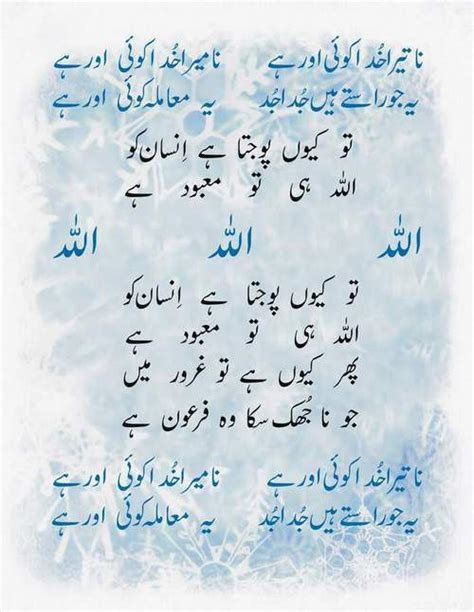 نا تیرا خُدا کوئی اور ہے نا میرا خُدا کوئی اور ہے
یہ جو راستے ہیں جُدا جُدا یہ معاملہ کوئی اور ہے
تو کیوں پوجتا ہے اِنسان کو
اللہ ہی تو معبود ہے
اللہ اللہ اللہ
تو کیوں پوجتا ہے اِنسان کو
اللہ ہی تو معبود ہے
پھر کیوں ہے تو غرور میں
جو نا جُھک سکا وہ فرعون ہے
نا تیرا خُدا کوئی اور ہے نا میرا خُدا کوئی اور ہے
یہ جو راستے ہیں جُدا جُدا یہ معاملہ کوئی اور ہے